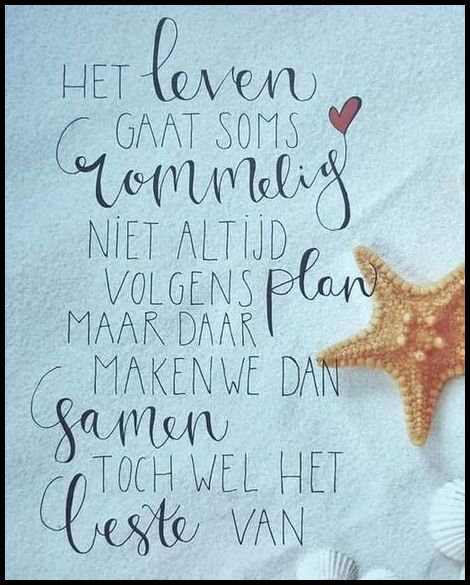 HET leven
GAAT SOMS
rommelig
NIET ALTIJD
VOLGENS plan
MAAR DAAR
MAKEN WE DAN
samen
TOCH WEL HET
beste VAN